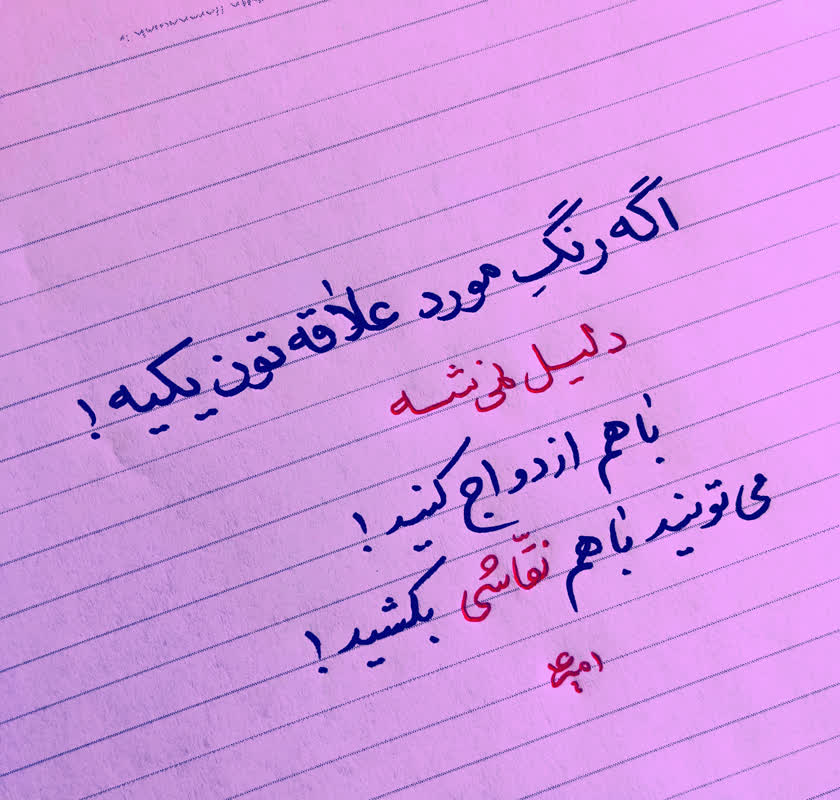 اگه رنگِ مورد علاقه تون یکیه!
دلیل نمی شه
با هم ازدواج کنید!
می تونید با هم نقّاشی بکشید!